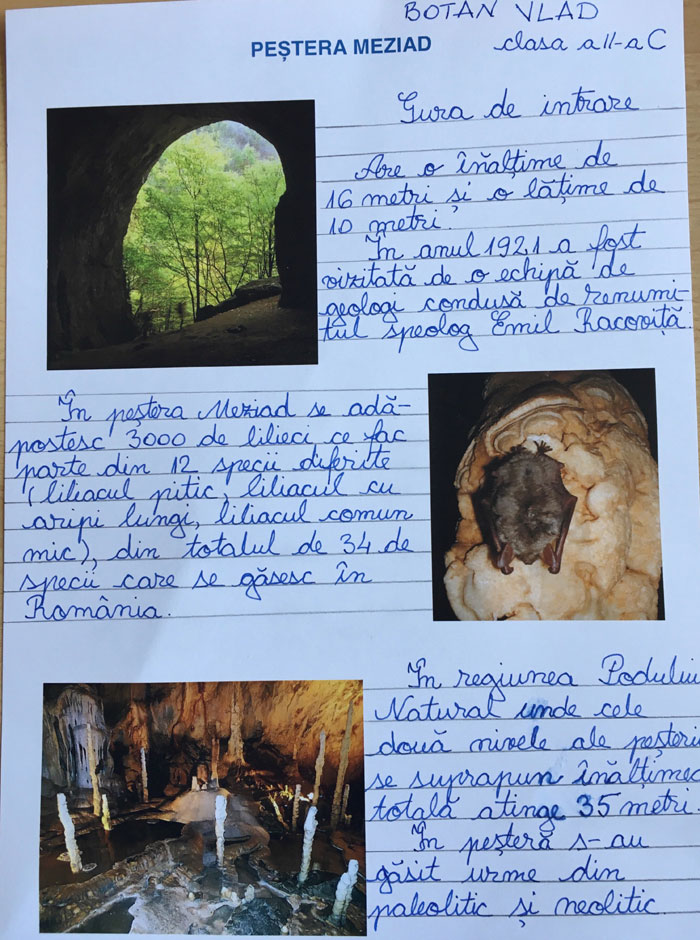 BOTAN VLAD
PEȘTERA MEZIAD
clasa a II-a C
Gura de intrare
Are o înălțime de
16 metri și o lățime de
10 metri.
În anul 1921 a fost
vizitată de o echipă de
geologi condusă de renumi-
tul speolog Emil Racoviță.
În peștera Meziad se adă-
postesc 3000 de lilieci ce fac
parte din 12 specii diferite
(liliacul pitic, liliacul cu
aripi lungi, liliacul comun
mic), din totalul de 34 de
specii care se găsesc în
România.
În regiunea Podului
Natural unde cele
două nivele ale peșterii
se suprapun înălțimea
totală atinge 35 metri.
În peșteră s-au
găsit urme din
paleolitic și neolitic.